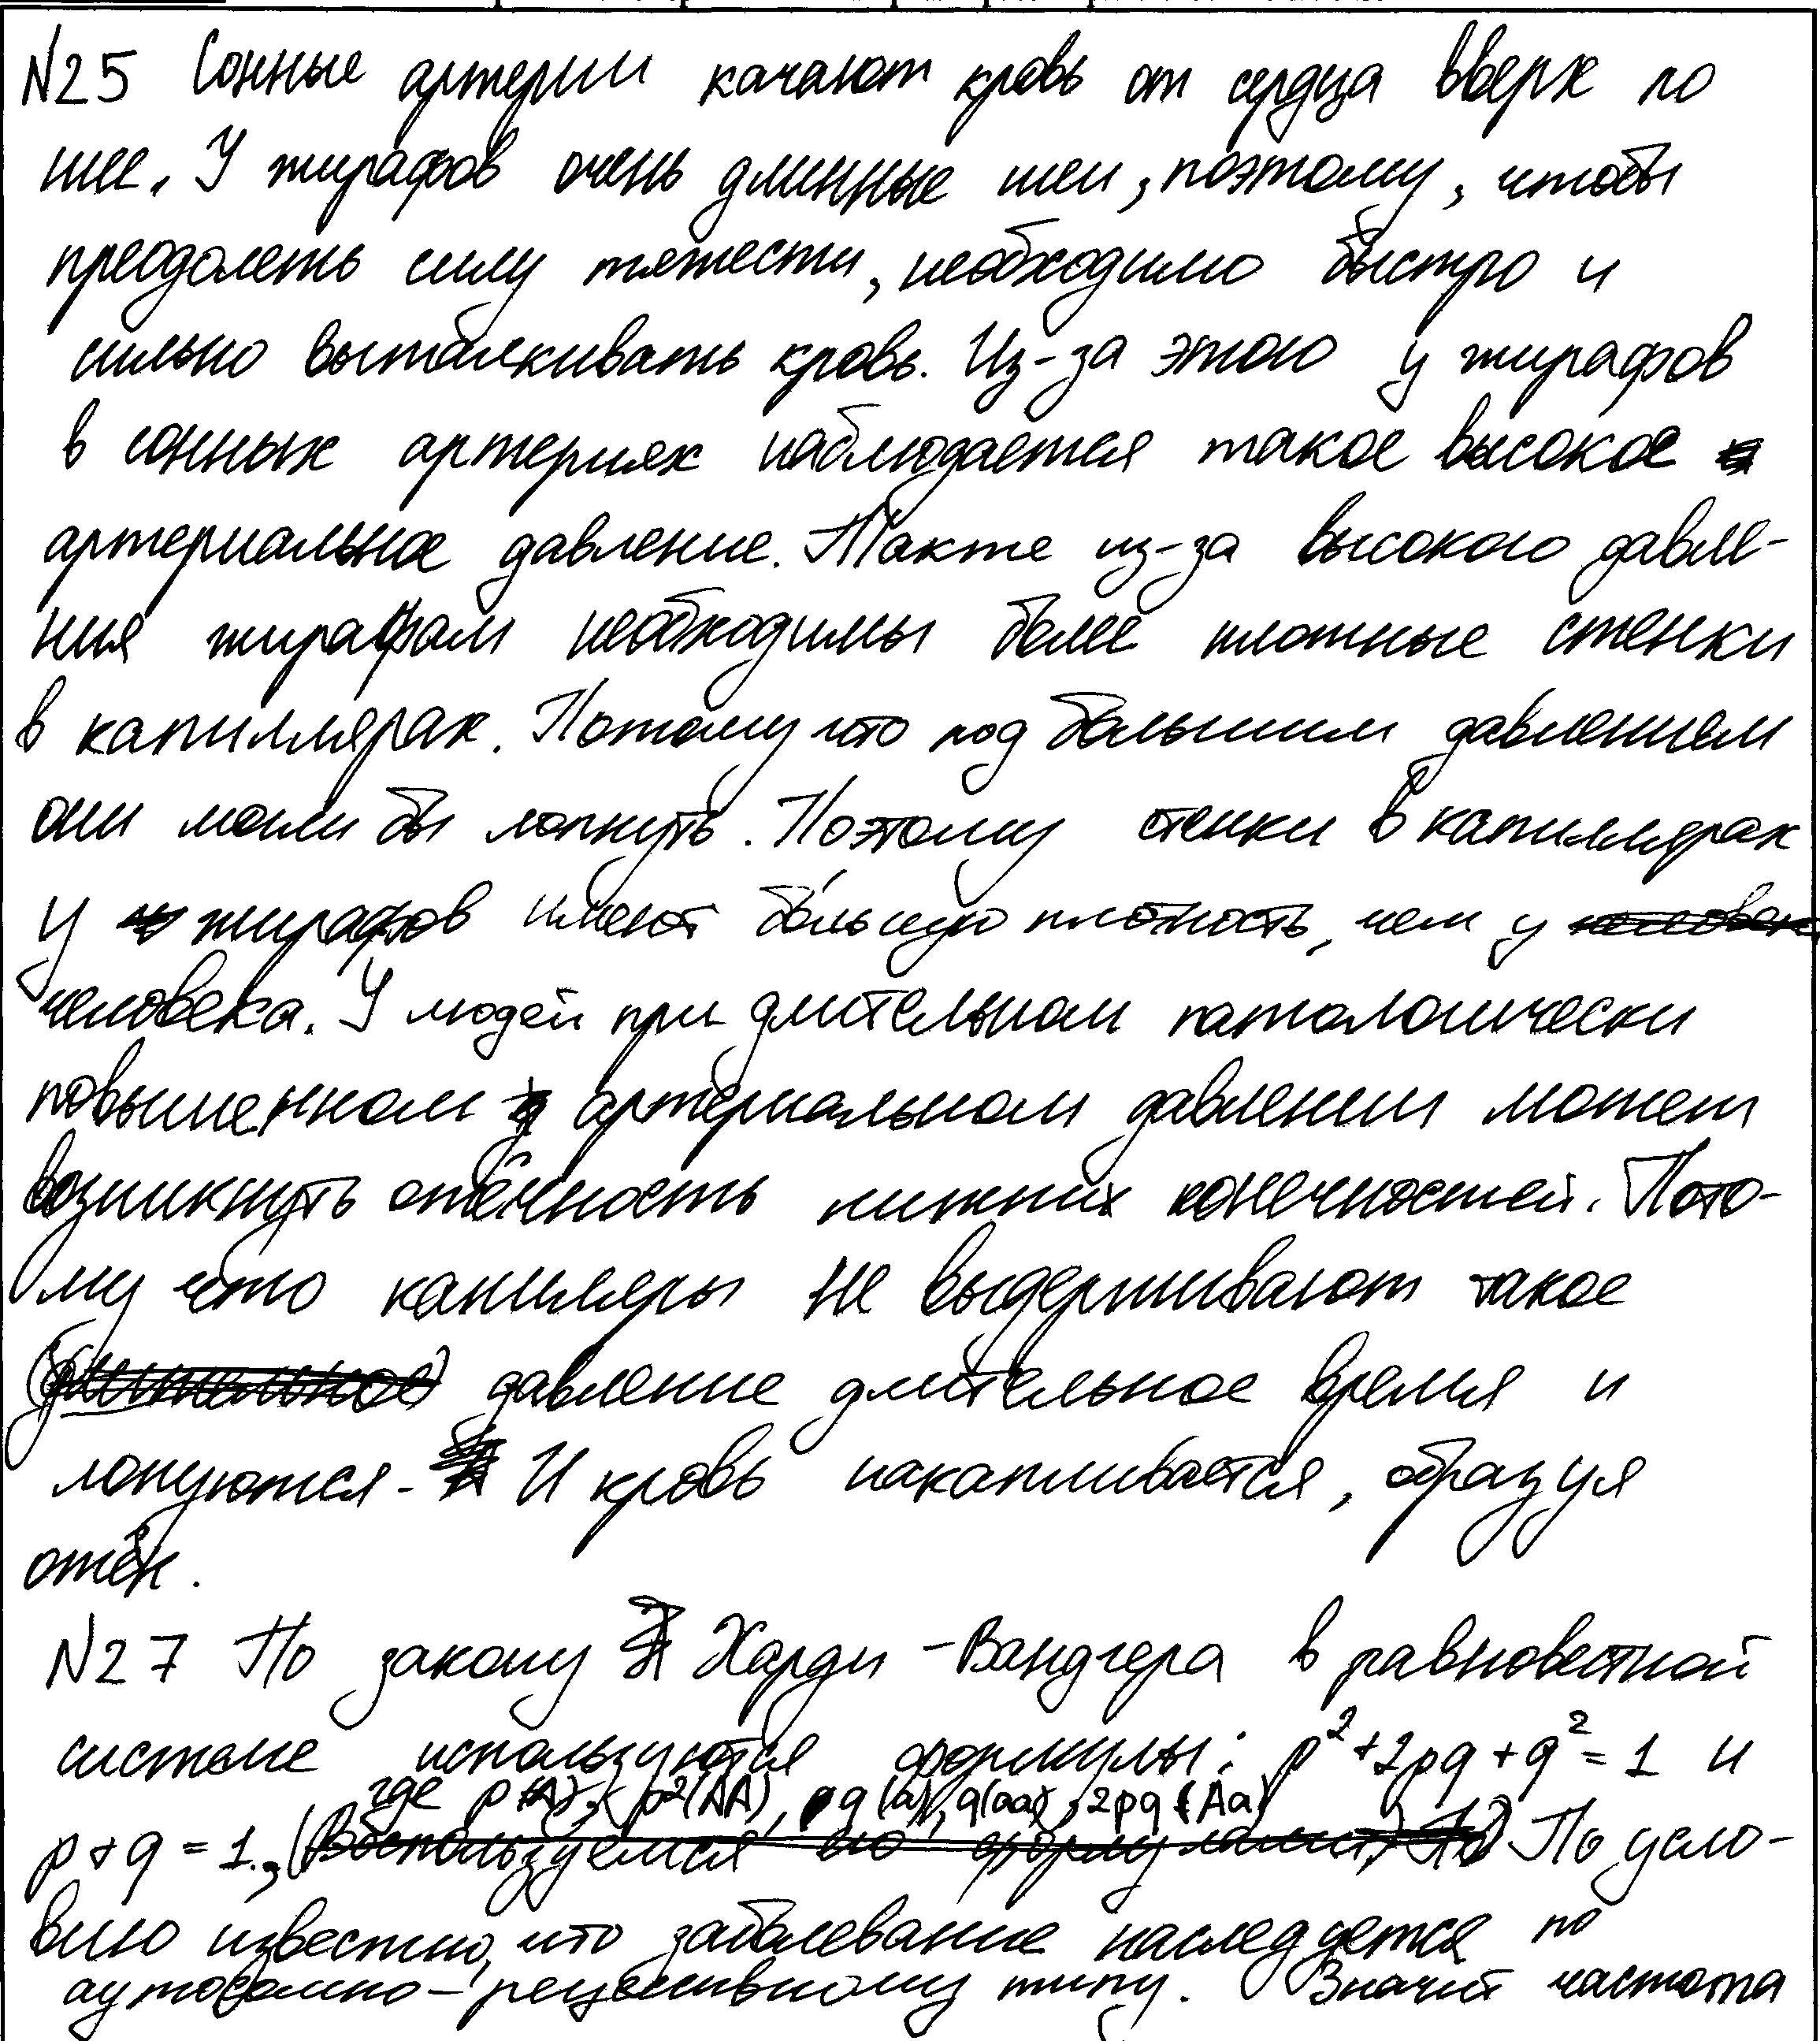 N25 Сонные артерии качают кровь от сердца вверх по
шее. У жирафов очень длинные шеи, поэтому, чтобы
преодолеть силу тяжести, необходимо быстро и
сильно выталкивать кровь. Из-за этого у жирафов
в сонных артериях наблюдается такое высокое
артериальное давление. Также из-за высокого давле-
ния жирафам необходимы более плотные стенки
в капиллярах. Потому что под большим давлением
они могли бы лопнуть. Поэтому стенки в капиллярах
у жирафов имеют большую плотность, чем у
человека. У людей при длительном патологически
повышенном артериальном давлении может
возникнуть отёчность нижних конечностей. Пото-
му что капилляры не выдерживают такое
давление длительное время и
лопуются. И кровь накапливается, образуя
отёк.
N27 По закону Харди-Вандгера в равновестной
системе используются формулы: p²+2pq+q²=1 и
где p(A), p²(AA), q(a), q(aa), 2pq (Aa)
p+q=1., По усло-
вию известно, что заболевание наследуется по
аутосомно-рецессивному типу. Значит частота